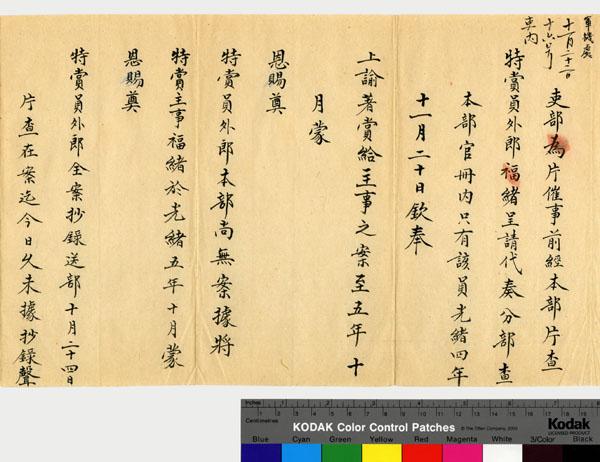 軍機處
十一月二十二日
十六号
車內
吏部為片催事前經本部片查
特賞員外郎福緒呈請代奏分部查
本部官冊內只有該員光緒四年
十一月二十日欽奉
上諭著賞給主事之案至五年十
月蒙
恩賜奠
特賞員外郎本部尚無案據將
特賞主事福緒於光緒五年十月蒙
恩賜奠
特賞員外郎全案抄錄送部十月二十四日
片查在案迄今日久未據抄錄聲
Inches
Centimetres
KODAK Color Control Patches
© The Tiffen Company, 2000
Kodak
LICENSED PRODUCT
Blue Cyan Green Yellow Red Magenta White 3/Color Black